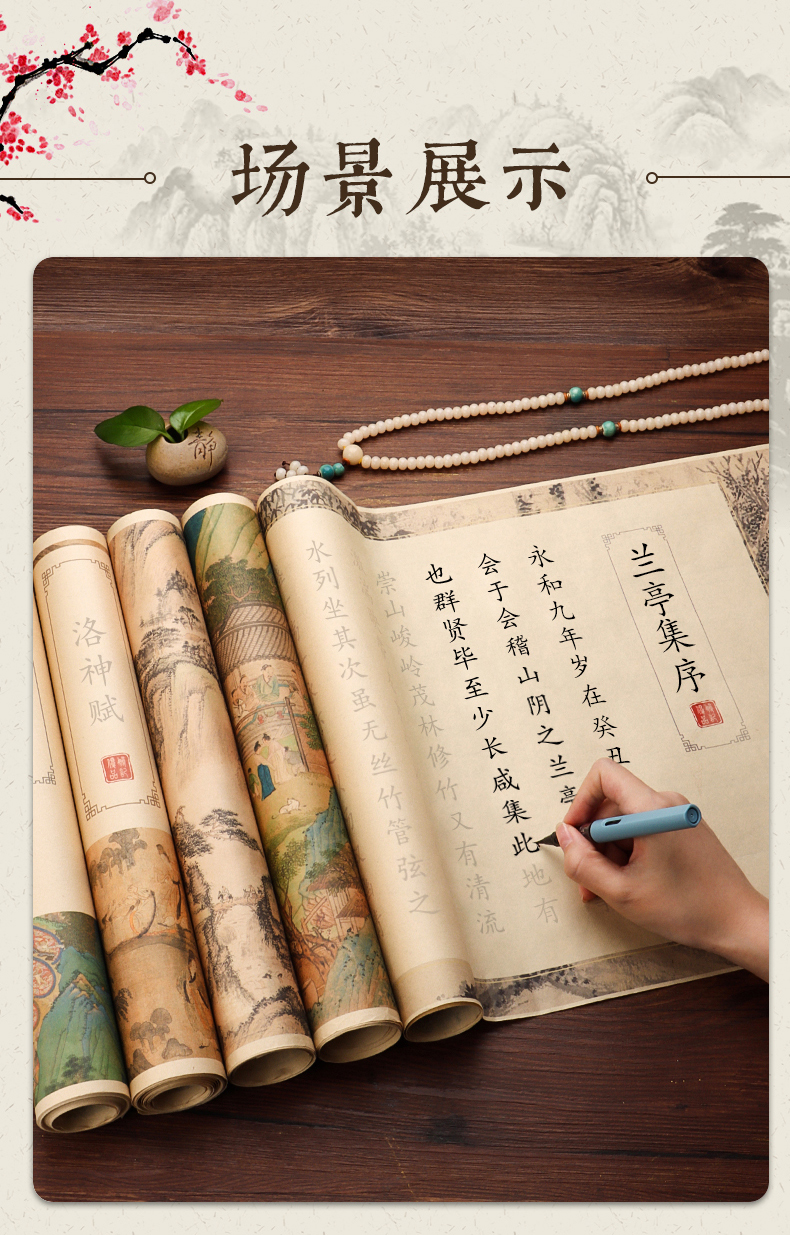 场景展示
静
兰亭集序
永和九年岁在癸丑
会于会稽山阴之兰亭
也群贤毕至少长咸集此地有
崇山峻岭茂林修竹又有清流
水列坐其次虽无丝竹管弦之
洛神赋